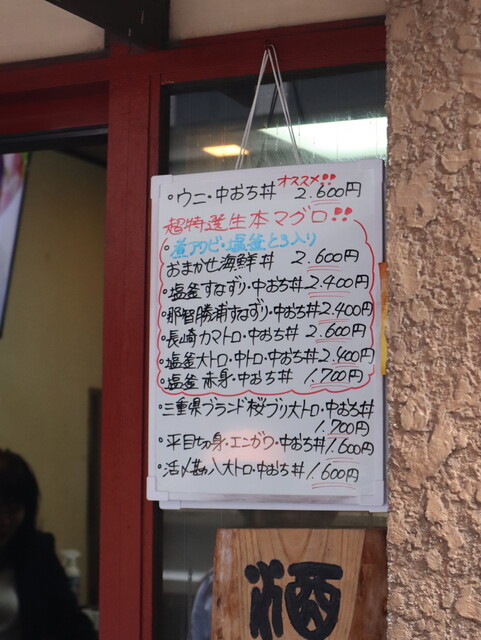 オススメ!!
・ウニ・中おち丼 2.600円
超特選生本マグロ!!
・煮アワビ・塩釜とろ入り
おまかせ海鮮丼 2.600円
・塩釜すなずり・中おち丼 2.400円
・那智勝浦すなずり・中おち丼 2.400円
・長崎カマトロ・中おち丼 2.600円
・塩釜大トロ・中トロ・中おち丼 2.400円
・塩釜赤身・中おち丼 1.700円
・三重県ブランド桜ブリ大トロ・中おち丼
1.700円
・平目切身・エンガワ・中おち丼 1.600円
・活〆勘八大トロ・中おち丼 1.600円
酒